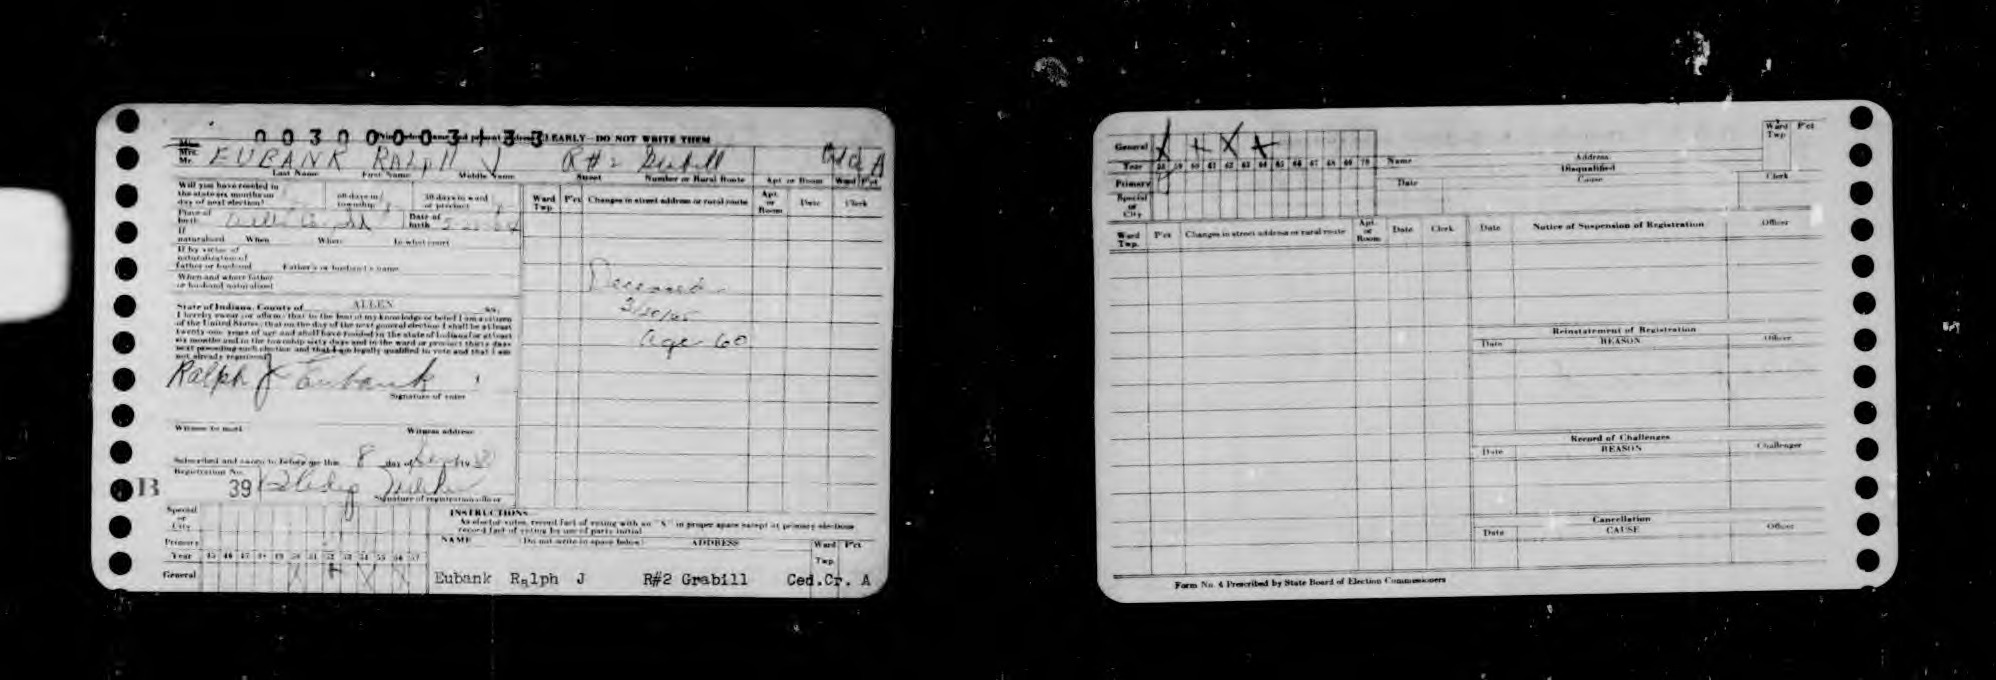 00300003133
Print below name and present address CLEARLY—DO NOT WRITE THEM
Mrs.
Mr. EUBANK RALPH J R#2 Grabill A
Last Name First Name Middle Name Street Number or Rural Route Apt. or Room Ward Pct
Will you have resided in
the state six months on
day of next election?
60 days in
township
30 days in ward
or precinct
Place of
birth
Date of
birth
If
naturalized When Where In what court
If by virtue of
naturalization of
father or husband Father's or husband's name
When and where father
or husband naturalized
State of Indiana, County of ALLEN ss:
I hereby swear (or affirm) that to the best of my knowledge or belief I am a citizen
of the United States; that on the day of the next general election I shall be at least
twenty-one years of age and shall have resided in the state of Indiana for at least
six months and in the township sixty days and in the ward or precinct thirty days
next preceding such election and that I am legally qualified to vote and that I am
not already registered.
Ralph J Eubank
Signature of voter
Witness to mark Witness address
Subscribed and sworn to before me this 8 day of Sept 19 50
Registration No.
B 39
Signature of registration officer
Ward
Twp. Pct Changes in street address or rural route Apt.
or
Room Date Clerk
Deceased
3/20/65
Age 60
Special
or
City
Primary
Year 45 46 47 48 49 50 51 52 53 54 55 56 57
General X X X X
INSTRUCTIONS
As elector votes, record fact of voting with an "X" in proper space except at primary elections
record fact of voting by use of party initial.
NAME (Do not write in space below) ADDRESS Ward
Twp. Pct
Eubank Ralph J R#2 Grabill Ced.Cr. A
General X X X X
Year 58 59 60 61 62 63 64 65 66 67 68 69 70
Primary
Special
or
City
Name Address Ward
Twp Pct
Disqualified
Date Cause Clerk
Ward
Twp. Pct Changes in street address or rural route Apt.
or
Room Date Clerk
Date Notice of Suspension of Registration Officer
Reinstatement of Registration
Date REASON Officer
Record of Challenges
Date REASON Challenger
Cancellation
Date CAUSE Officer
Form No. 4 Prescribed by State Board of Election Commissioners